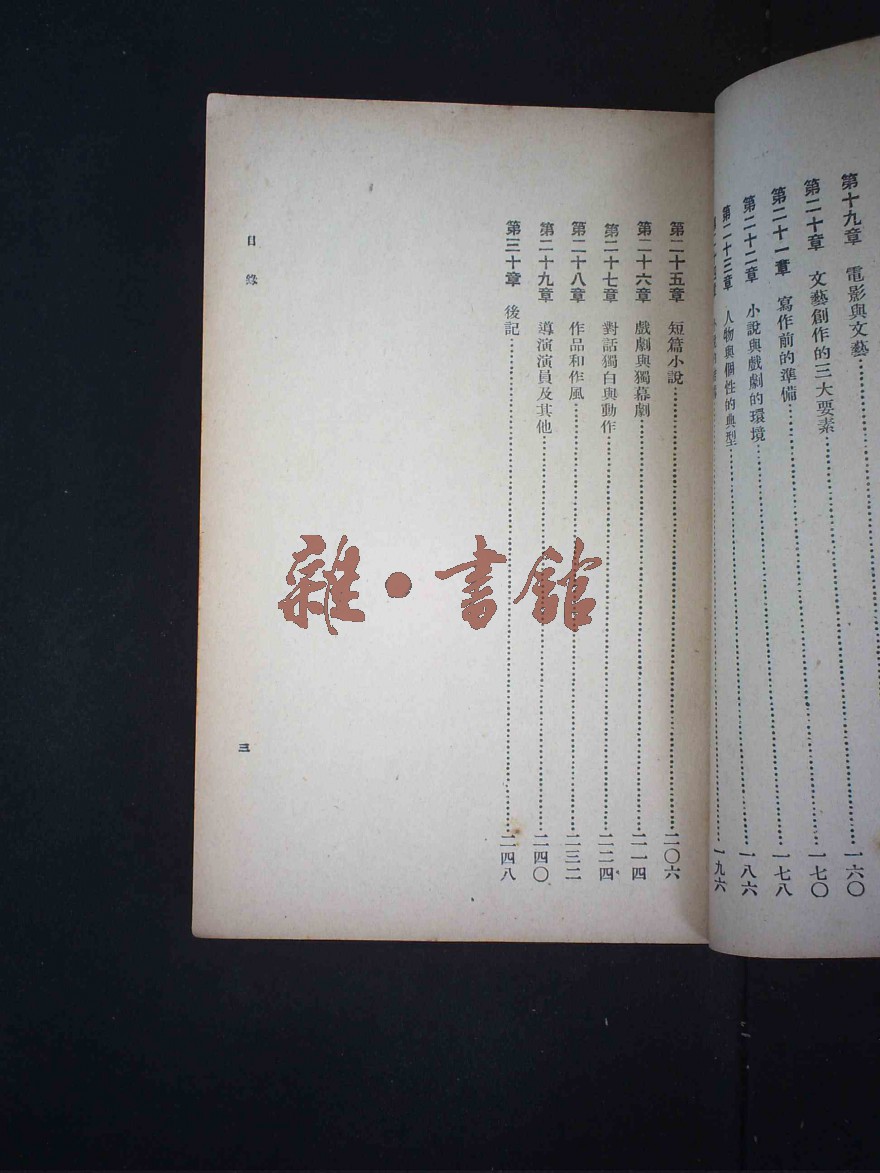 第十九章 電影與文藝……一六〇
第二十章 文藝創作的三大要素……一七〇
第二十一章 寫作前的準備……一七八
第二十二章 小說與戲劇的環境……一八六
第二十三章 人物與個性的典型……一九六
第二十五章 短篇小說……二〇六
第二十六章 戲劇與獨幕劇……二一四
第二十七章 對話獨白與動作……二二四
第二十八章 作品和作風……二三二
第二十九章 導演演員及其他……二四〇
第三十章 後記……二四八
目錄
三
雜·書館